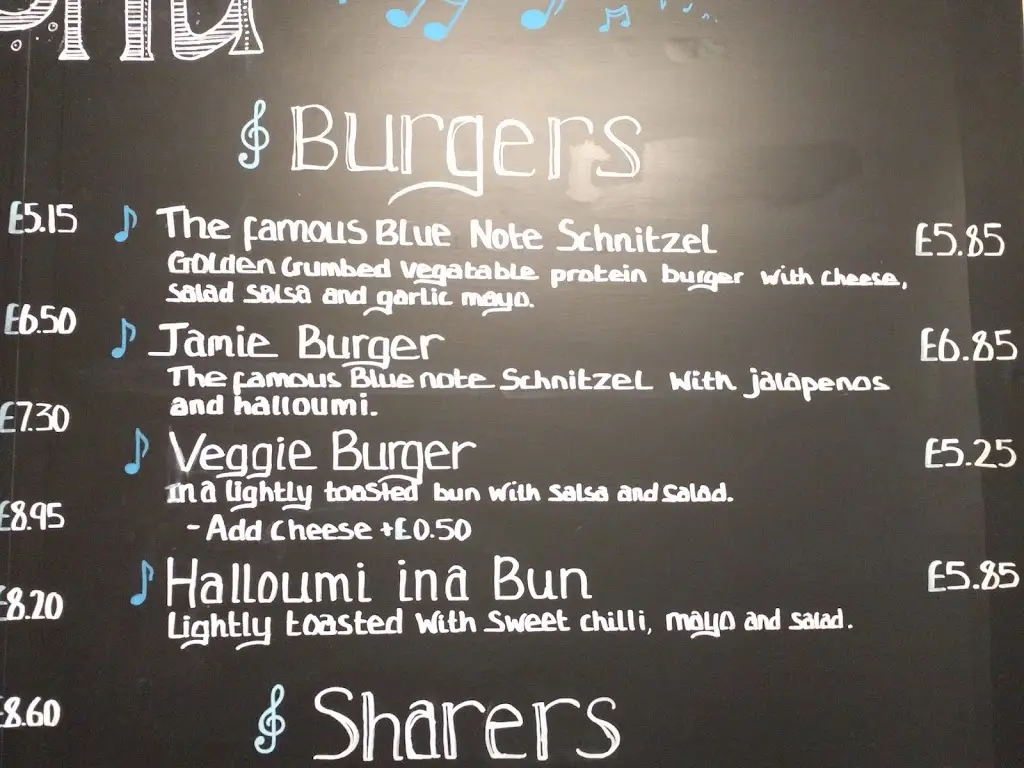 Burgers
£5.15
The famous Blue Note Schnitzel £5.85
Golden Crumbed Vegatable protein burger with cheese,
salad salsa and garlic mayo.
£6.50
Jamie Burger £6.85
The famous Blue note Schnitzel With jalapenos
and halloumi.
£7.30
Veggie Burger £5.25
in a lightly toasted bun with salsa and salad.
£8.95
- Add Cheese +£0.50
Halloumi in a Bun £5.85
£8.20
Lightly toasted With Sweet chilli, mayo and salad.
£8.60
Sharers